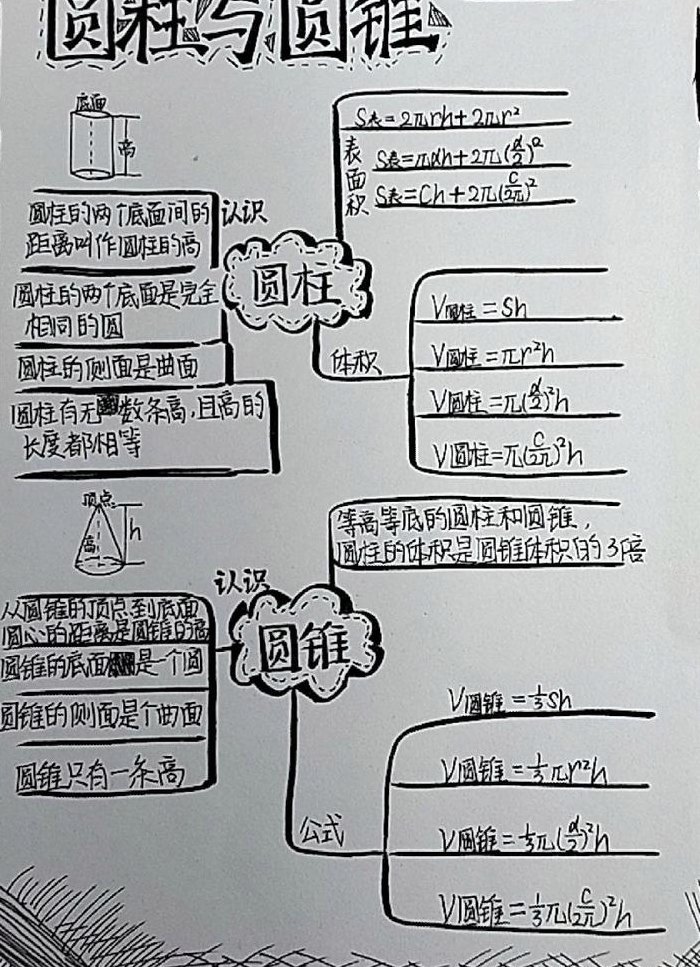 圆柱与圆锥
底面
高
圆柱的两个底面间的
距离叫作圆柱的高
认识
圆柱的两个底面是完全
相同的圆
圆柱的侧面是曲面
圆柱有无数条高,且高的
长度都相等
圆柱
表面积
S表=2πrh+2πr²
S表=πdh+2π(d/2)²
S表=Ch+2π(C/2π)²
体积
V圆柱=Sh
V圆柱=πr²h
V圆柱=π(d/2)²h
V圆柱=π(C/2π)²h
顶点
高
h
认识
从圆锥的顶点到底面
圆心的距离是圆锥的高
圆锥的底面是一个圆
圆锥的侧面是个曲面
圆锥只有一条高
圆锥
等高等底的圆柱和圆锥,
圆柱的体积是圆锥体积的3倍
公式
V圆锥=1/3Sh
V圆锥=1/3πr²h
V圆锥=1/3π(d/2)²h
V圆锥=1/3π(C/2π)²h